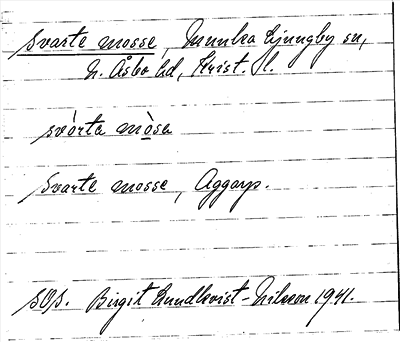 Svarte mosse, Munka Ljungby sn,
N. Åsbo hd, Krist. l.
svòrta mòsa
Svarte mosse, Aggarp.
SOS. Birgit Lundkvist-Nilsson 1941.